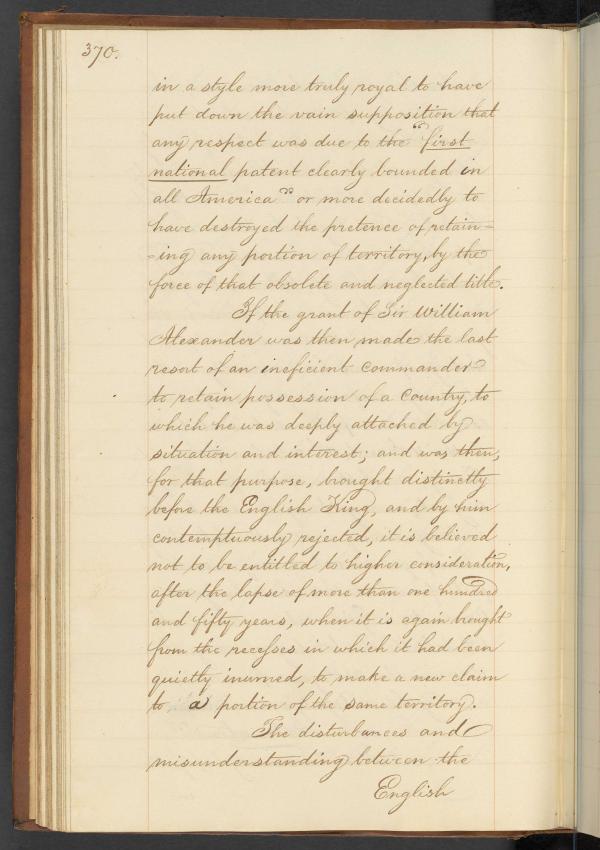 370.
in a style more truly royal to have
put down the vain supposition that
any respect was due to the "first
national patent clearly bounded in
all America" or more decidedly to
have destroyed the pretence of retain=
=ing any portion of territory, by the
force of that obsolete and neglected title.
If the grant of Sir William
Alexander was then made the last
resort of an ineficient commander
to retain possession of a Country, to
which he was deeply attached by
situation and interest; and was then,
for that purpose, brought distinctly
before the English King, and by him
contemptuously rejected, it is believed
not to be entitled to higher consideration,
after the lapse of more than one hundred
and fifty years, when it is again brought
from the recesses in which it had been
quietly inurned, to make a new claim
to a portion of the same territory.
The disturbances and
misunderstanding between the
English